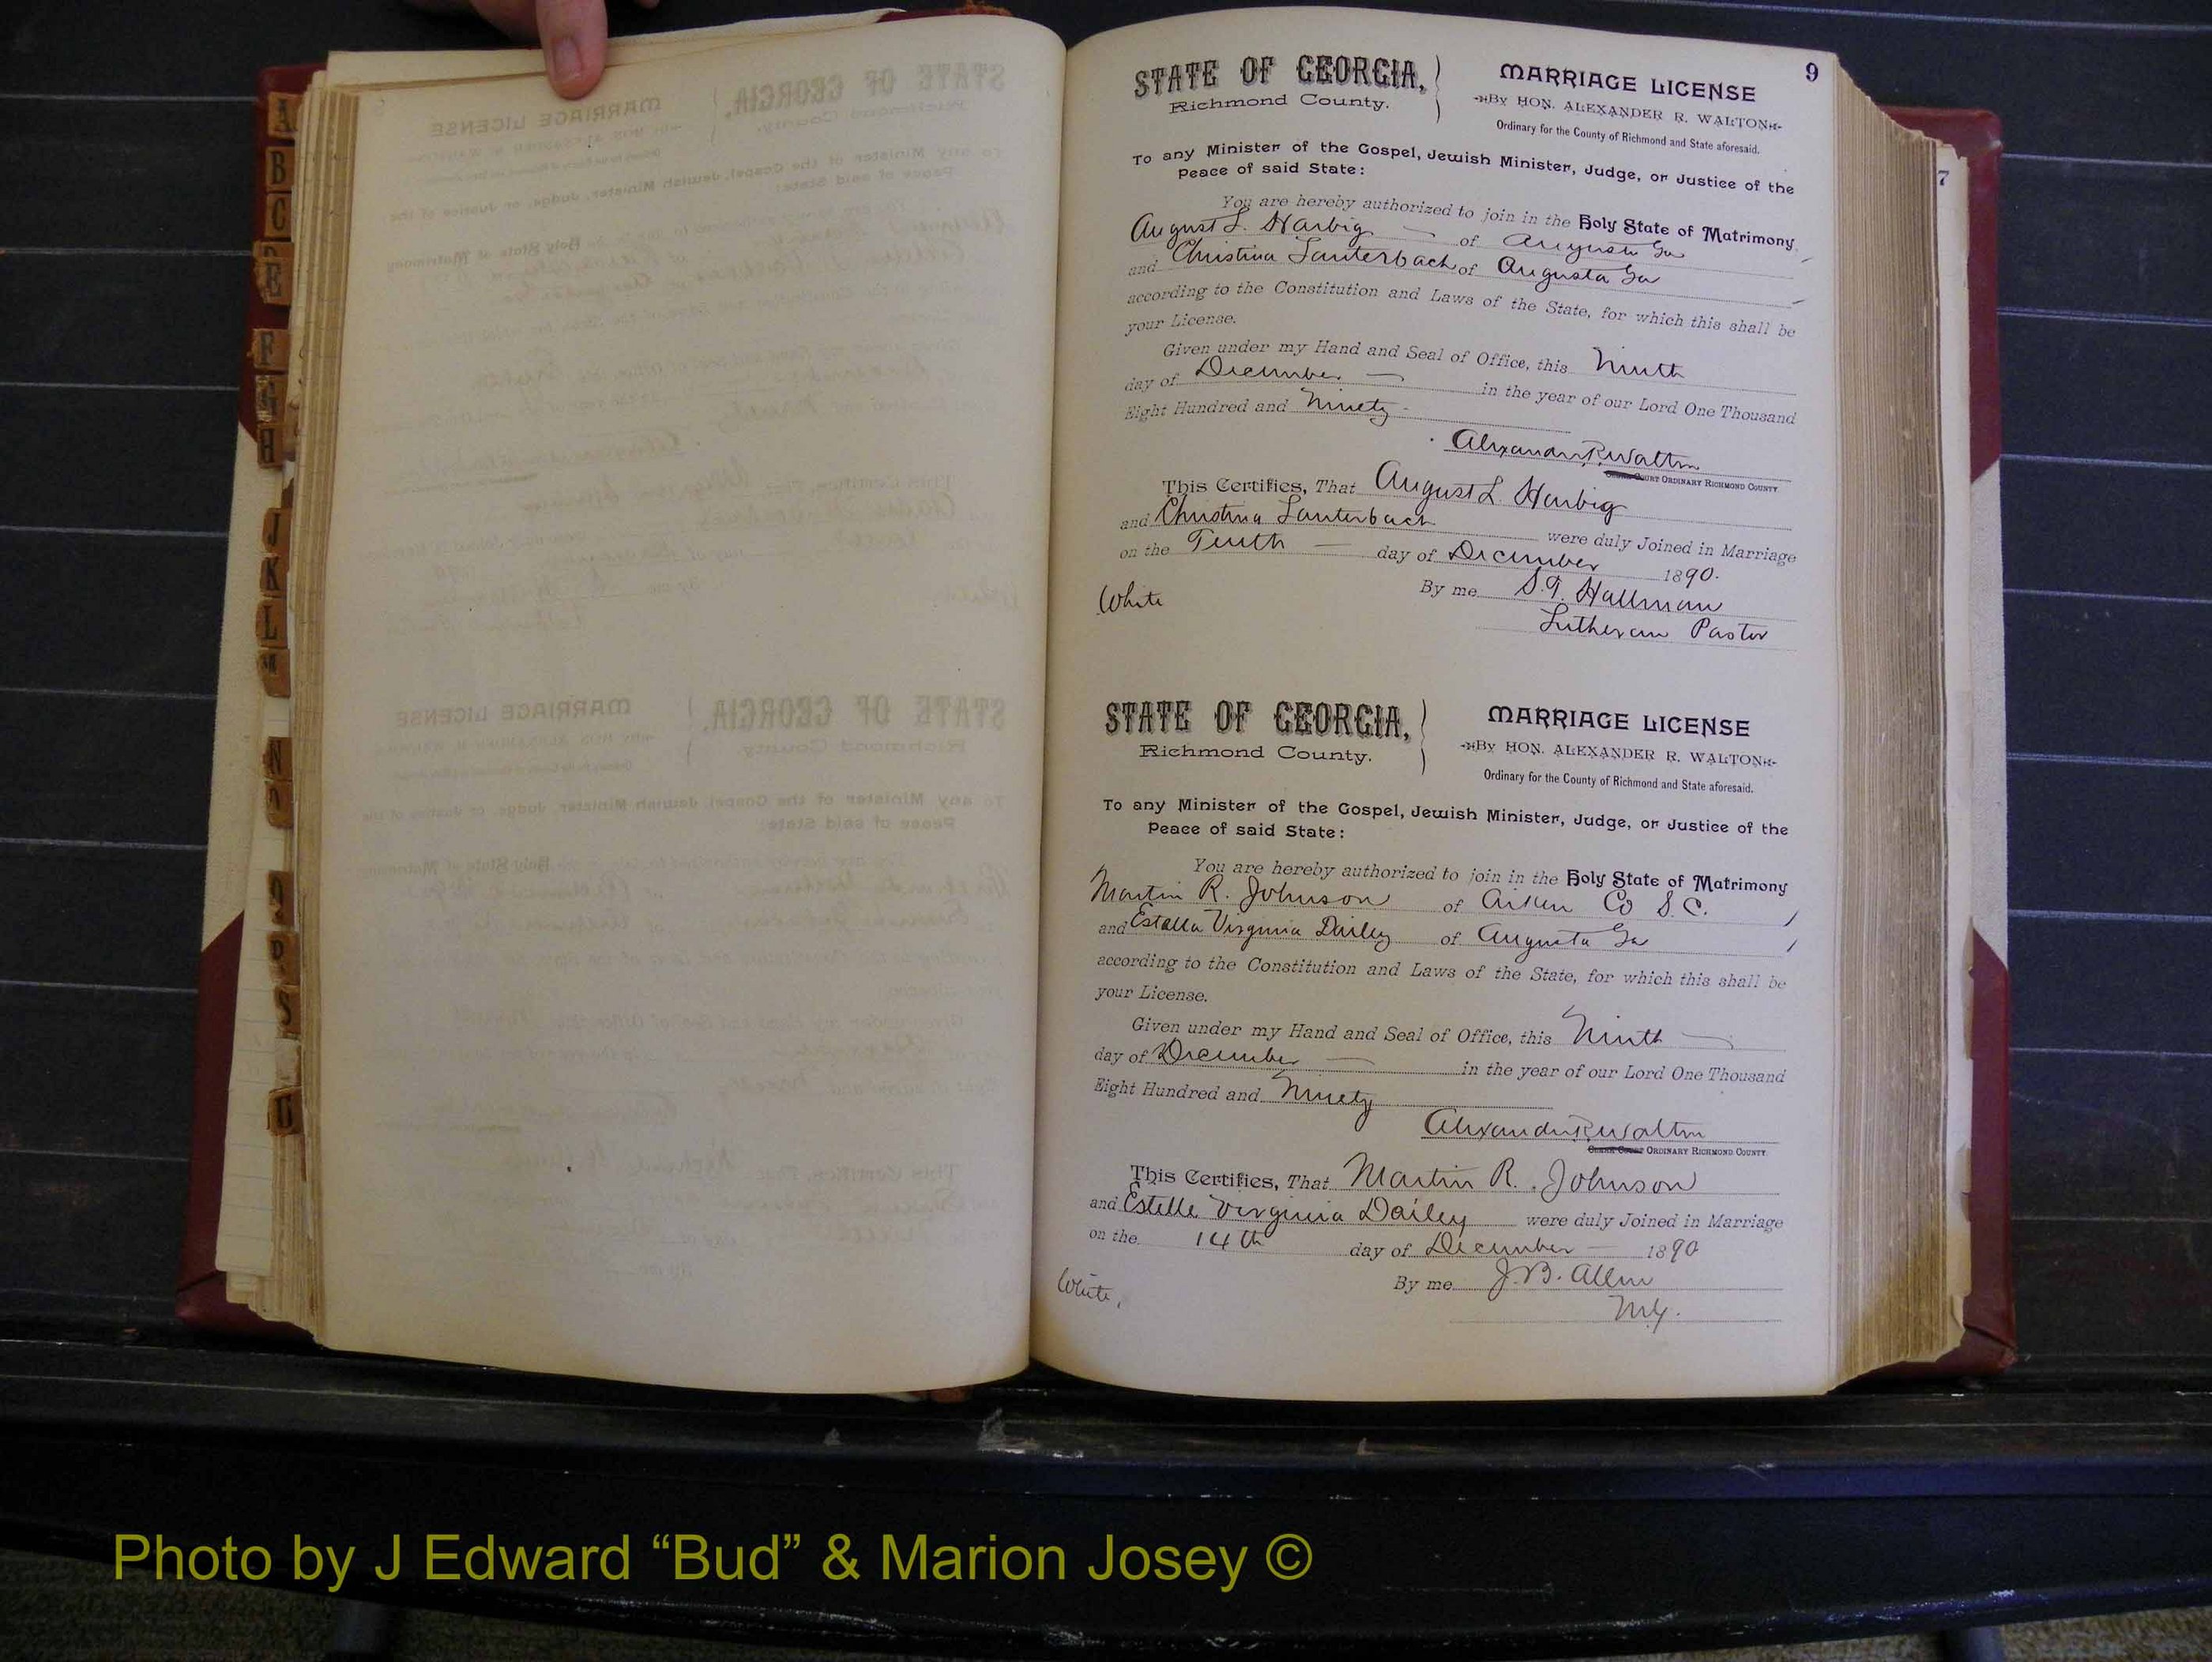 A
B
C
E
F
G
H
J
K
L
M
N
O
P
S
U
9
7
STATE OF GEORGIA,
Richmond County.
MARRIAGE LICENSE
By HON. ALEXANDER R. WALTON
Ordinary for the County of Richmond and State aforesaid.
To any Minister of the Gospel, Jewish Minister, Judge, or Justice of the
Peace of said State:
You are hereby authorized to join in the Holy State of Matrimony
August L. Harbig of Augusta Ga
and Christina Lauterbach of Augusta Ga
according to the Constitution and Laws of the State, for which this shall be
your License.
Given under my Hand and Seal of Office, this Ninth
day of December in the year of our Lord One Thousand
Eight Hundred and Ninety
Alexander R. Walton
Court Ordinary Richmond County
This Certifies, That August L. Harbig
and Christina Lauterbach were duly Joined in Marriage
on the Tenth day of December 1890.
White By me S. T. Hallman
Lutheran Pastor
STATE OF GEORGIA,
Richmond County.
MARRIAGE LICENSE
By HON. ALEXANDER R. WALTON
Ordinary for the County of Richmond and State aforesaid.
To any Minister of the Gospel, Jewish Minister, Judge, or Justice of the
Peace of said State:
You are hereby authorized to join in the Holy State of Matrimony
Martin R. Johnson of Aiken Co S.C.
and Estella Virginia Dailey of Augusta Ga
according to the Constitution and Laws of the State, for which this shall be
your License.
Given under my Hand and Seal of Office, this Ninth
day of December in the year of our Lord One Thousand
Eight Hundred and Ninety
Alexander R. Walton
Court Ordinary Richmond County
This Certifies, That Martin R. Johnson
and Estelle Virginia Dailey were duly Joined in Marriage
on the 14th day of December 1890
White, By me J. B. Allen
M.G.
Photo by J Edward “Bud” & Marion Josey ©